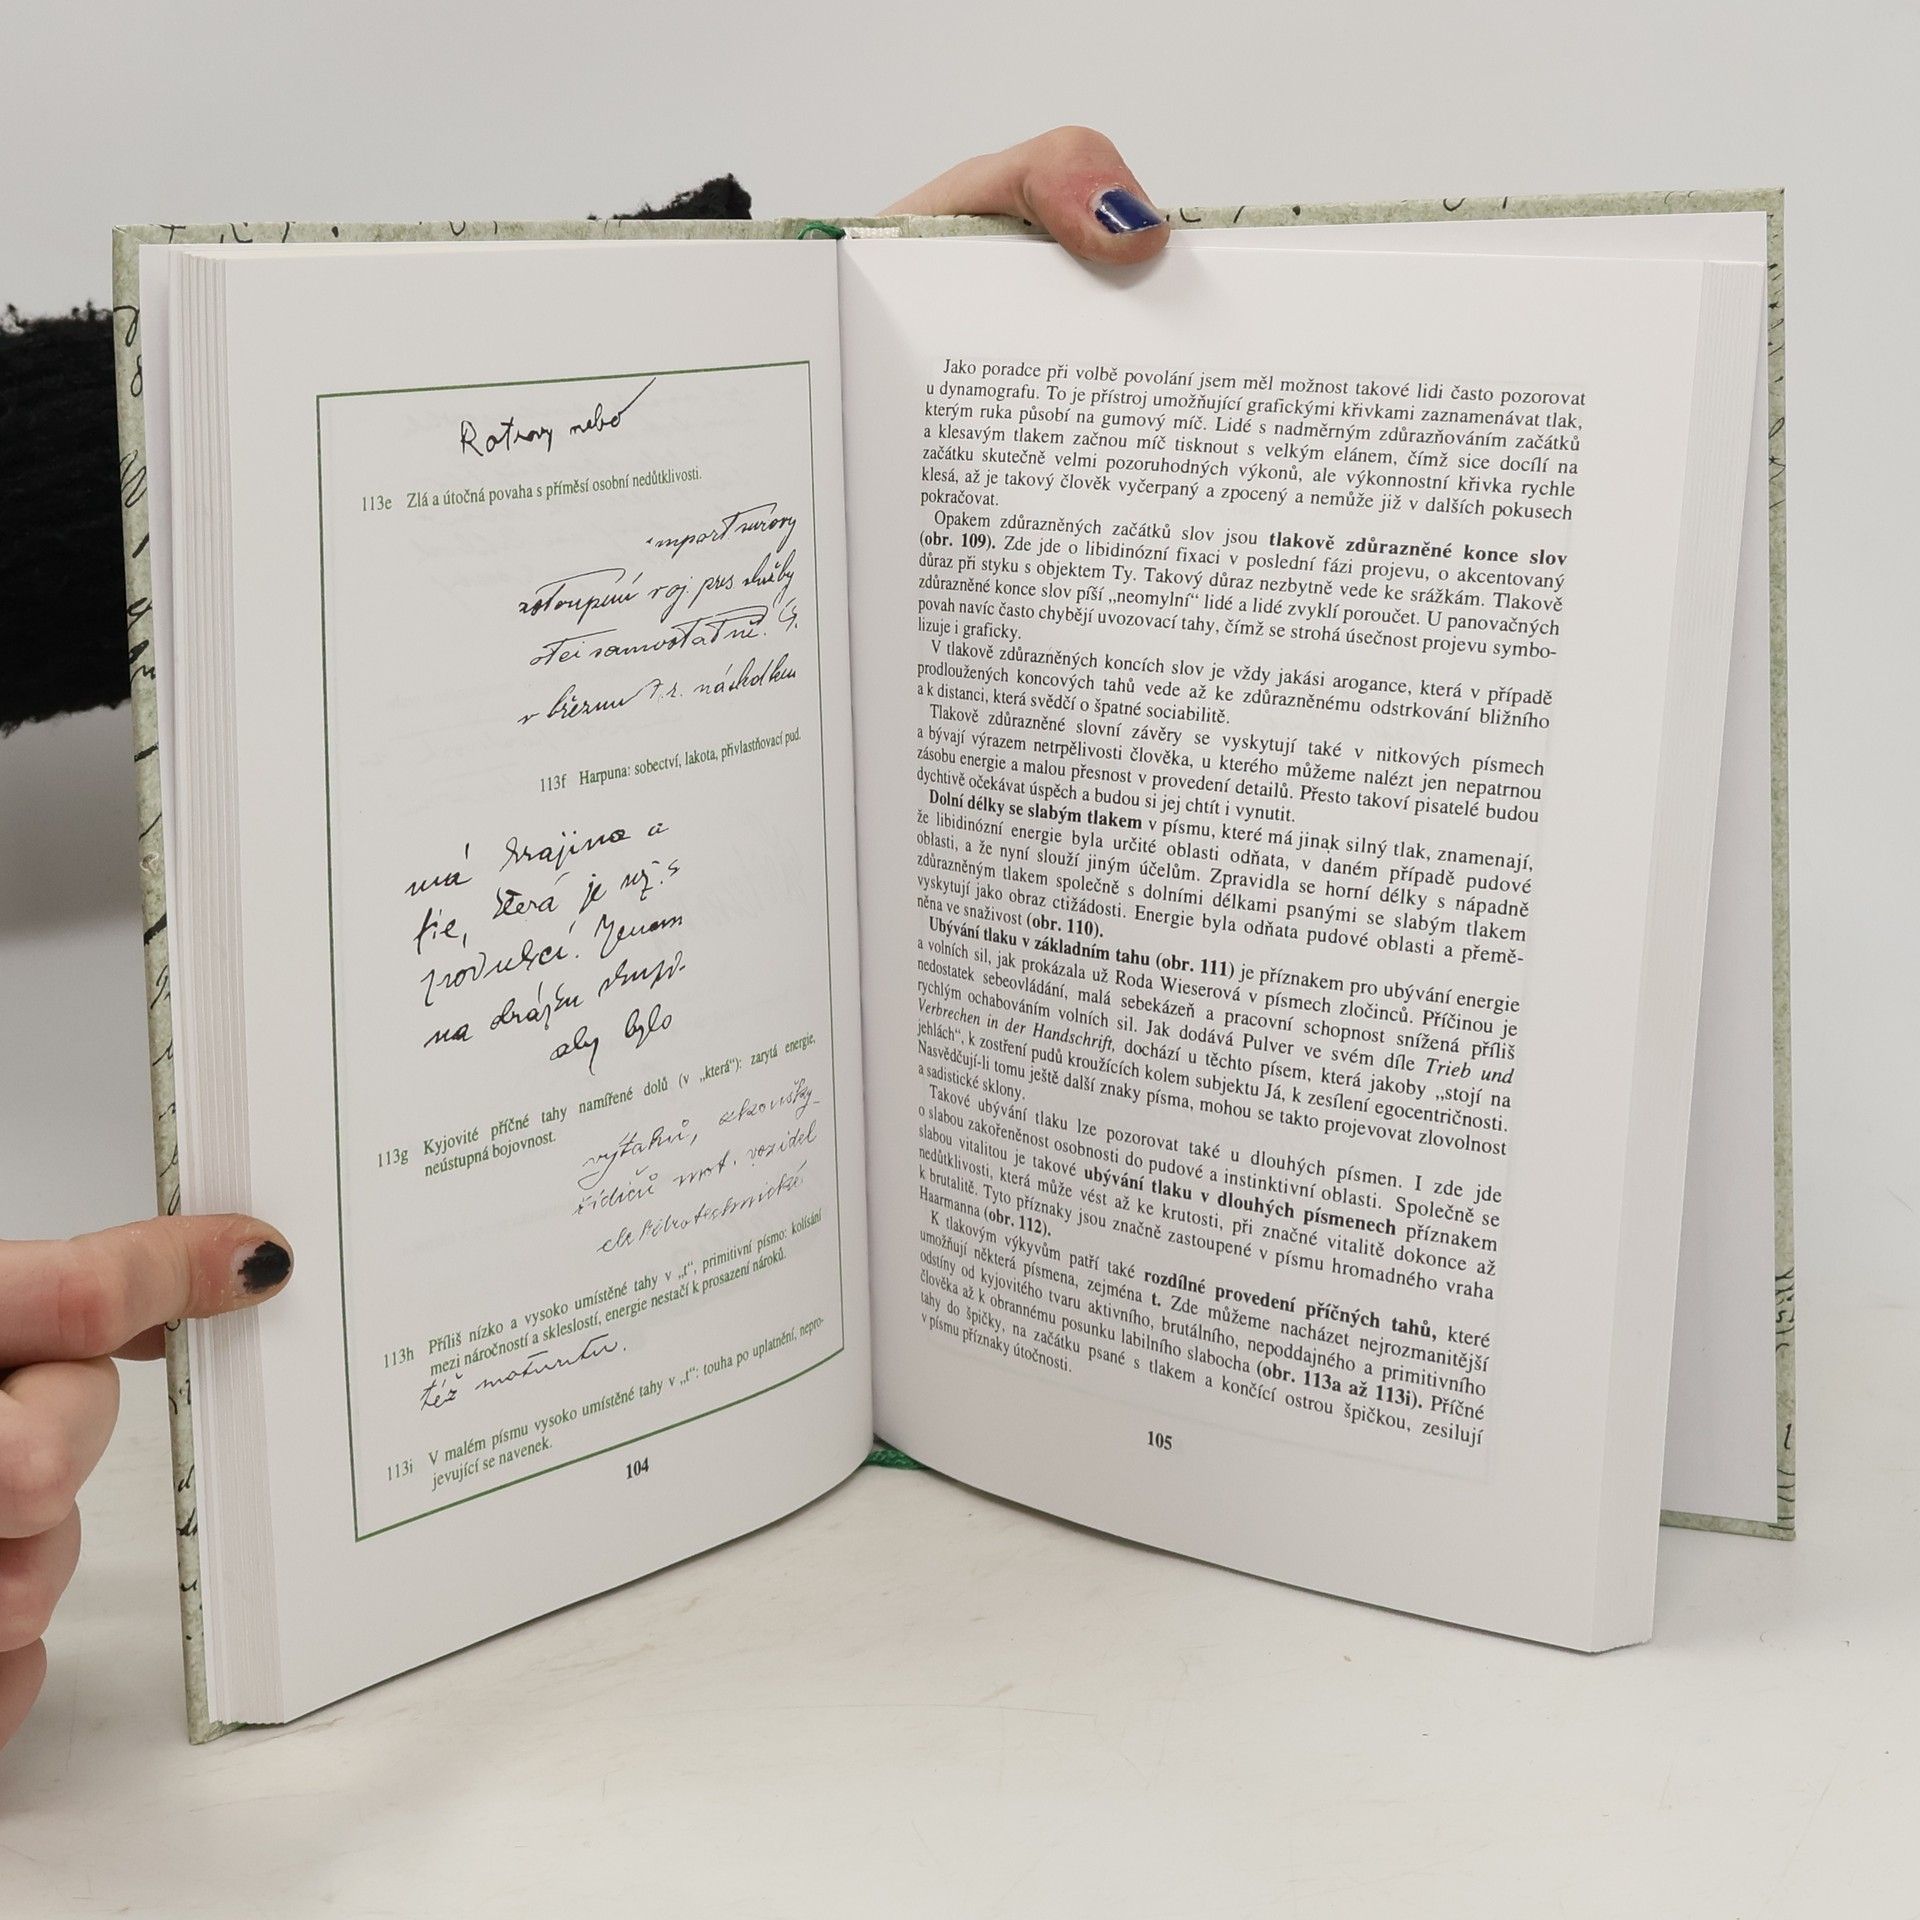 Rotrovy nebo
113e Zlá a útočná povaha s příměsí osobní nedůtklivosti.
import surovy
zastoupení voj. pres služby
otci samostatně. Čs.
v březnu t.r. následkem
113f Harpuna: sobectví, lakota, přivlastňovací pud.
má krajina a
fie, která je nej. s
produkcí. Jenom
na obrázku
aby bylo
113g Kyjovité příčné tahy namířené dolů (v „která“): zarytá energie,
neústupná bojovnost.
výtahů, zkoušky
řidičů mot. vozidel
elektrotechnické
113h Příliš nízko a vysoko umístěné tahy v „t“, primitivní písmo: kolísání
mezi náročností a skleslostí, energie nestačí k prosazení nároků.
též maturitu.
113i V malém písmu vysoko umístěné tahy v „t“: touha po uplatnění, nepro-
jevující se navenek.
104
Jako poradce při volbě povolání jsem měl možnost takové lidi často pozorovat
u dynamografu. To je přístroj umožňující grafickými křivkami zaznamenávat tlak,
kterým ruka působí na gumový míč. Lidé s nadměrným zdůrazňováním začátků
a klesavým tlakem začnou míč tisknout s velkým elánem, čímž sice docílí na
začátku skutečně velmi pozoruhodných výkonů, ale výkonnostní křivka rychle
klesá, až je takový člověk vyčerpaný a zpocený a nemůže již v dalších pokusech
pokračovat.
Opakem zdůrazněných začátků slov jsou tlakově zdůrazněné konce slov
(obr. 109). Zde jde o libidinózní fixaci v poslední fázi projevu, o akcentovaný
důraz při styku s objektem Ty. Takový důraz nezbytně vede ke srážkám. Tlakově
zdůrazněné konce slov píší „neomylní“ lidé a lidé zvyklí poroučet. U panovačných
povah navíc často chybějí uvozovací tahy, čímž se strohá úsečnost projevu symbo-
lizuje i graficky.
V tlakově zdůrazněných koncích slov je vždy jakási arogance, která v případě
prodloužených koncových tahů vede až ke zdůrazněnému odstrkování bližního
a k distanci, která svědčí o špatné sociabilitě.
Tlakově zdůrazněné slovní závěry se vyskytují také v nitkových písmech
a bývají výrazem netrpělivosti člověka, u kterého můžeme nalézt jen nepatrnou
zásobu energie a malou přesnost v provedení detailů. Přesto takoví pisatelé budou
dychtivě očekávat úspěch a budou si jej chtít i vynutit.
Dolní délky se slabým tlakem v písmu, které má jinak silný tlak, znamenají,
že libidinózní energie byla určité oblasti odňata, v daném případě pudové
oblasti, a že nyní slouží jiným účelům. Zpravidla se horní délky s nápadně
zdůrazněným tlakem společně s dolními délkami psanými se slabým tlakem
vyskytují jako obraz ctižádosti. Energie byla odňata pudové oblasti a přemě-
něna ve snaživost (obr. 110).
Ubývání tlaku v základním tahu (obr. 111) je příznakem pro ubývání energie
a volních sil, jak prokázala už Roda Wieserová v písmech zločinců. Příčinou je
nedostatek sebeovládání, malá sebekázeň a pracovní schopnost snížená příliš
rychlým ochabováním volních sil. Jak dodává Pulver ve svém díle Trieb und
Verbrechen in der Handschrift, dochází u těchto písem, která jakoby „stojí na
jehlách“, k zostření pudů kroužících kolem subjektu Já, k zesílení egocentričnosti.
Nasvědčují-li tomu ještě další znaky písma, mohou se takto projevovat zlovolnost
a sadistické sklony.
Takové ubývání tlaku lze pozorovat také u dlouhých písmen. I zde jde
o slabou zakořeněnost osobnosti do pudové a instinktivní oblasti. Společně se
slabou vitalitou je takové ubývání tlaku v dlouhých písmenech příznakem
nedůtklivosti, která může vést až ke krutosti, při značné vitalitě dokonce až
k brutalitě. Tyto příznaky jsou značně zastoupené v písmu hromadného vraha
Haarmanna (obr. 112).
K tlakovým výkyvům patří také rozdílné provedení příčných tahů, které
umožňují některá písmena, zejména t. Zde můžeme nacházet nejrozmanitější
odstíny od kyjovitého tvaru aktivního, brutálního, nepoddajného a primitivního
člověka až k obrannému posunku labilního slabocha (obr. 113a až 113i). Příčné
tahy do špičky, na začátku psané s tlakem a končící ostrou špičkou, zesilují
v písmu příznaky útočnosti.
105